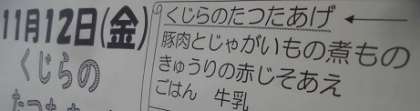 11月12日(金)
くじらの
くじらのたつたあげ
豚肉とじゃがいもの煮もの
きゅうりの赤じそあえ
ごはん 牛乳